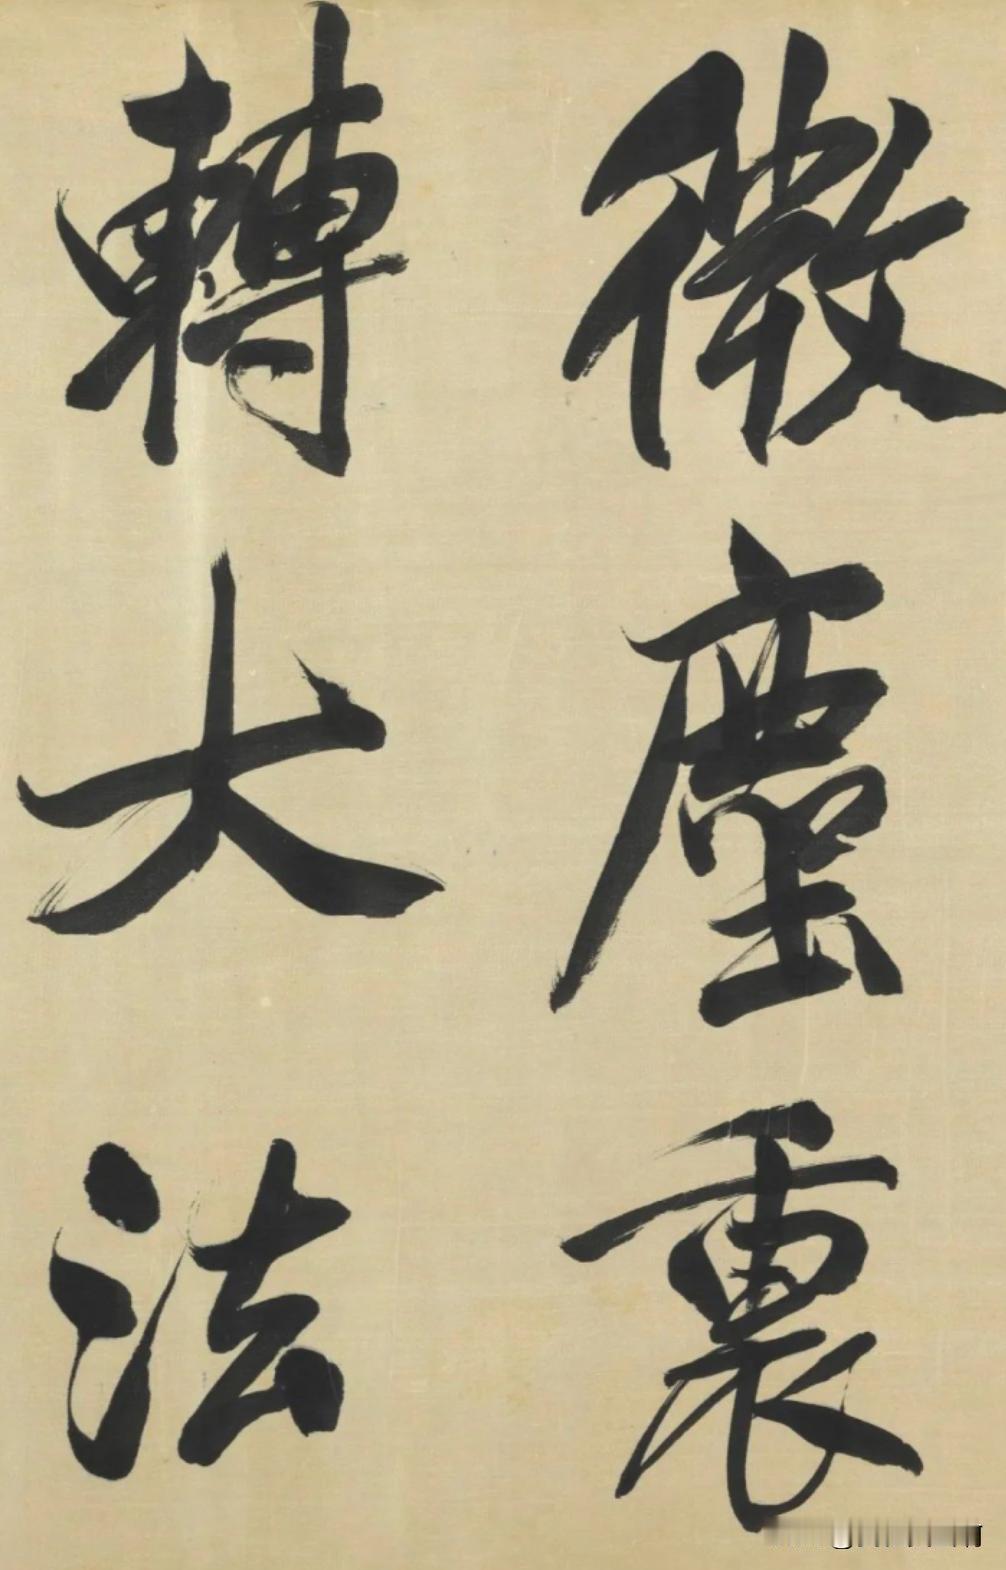 微塵裏
轉大法